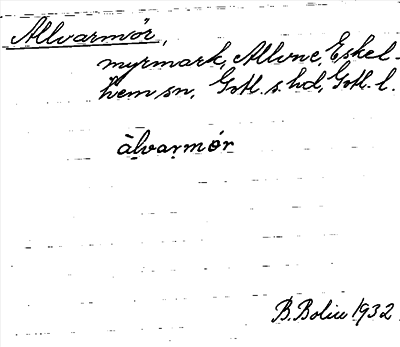 Allvarmör,
myrmark, Allvne, Eskel-
hem sn, Gotl. s. hd, Gotl. l.
àlvarmór
B. Bolin 1932